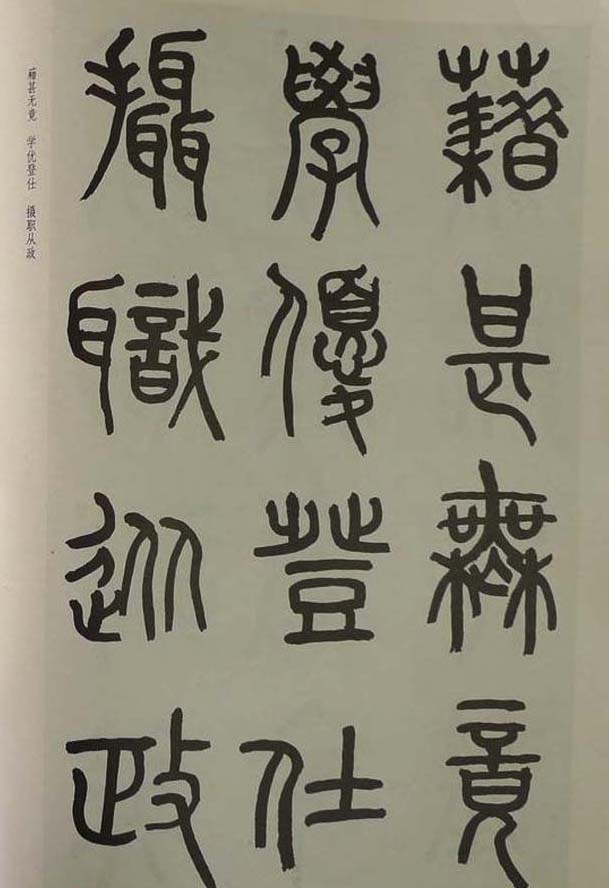 藉甚無竟
學優登仕
攝職從政
籍甚无竟 学优登仕 摄职从政